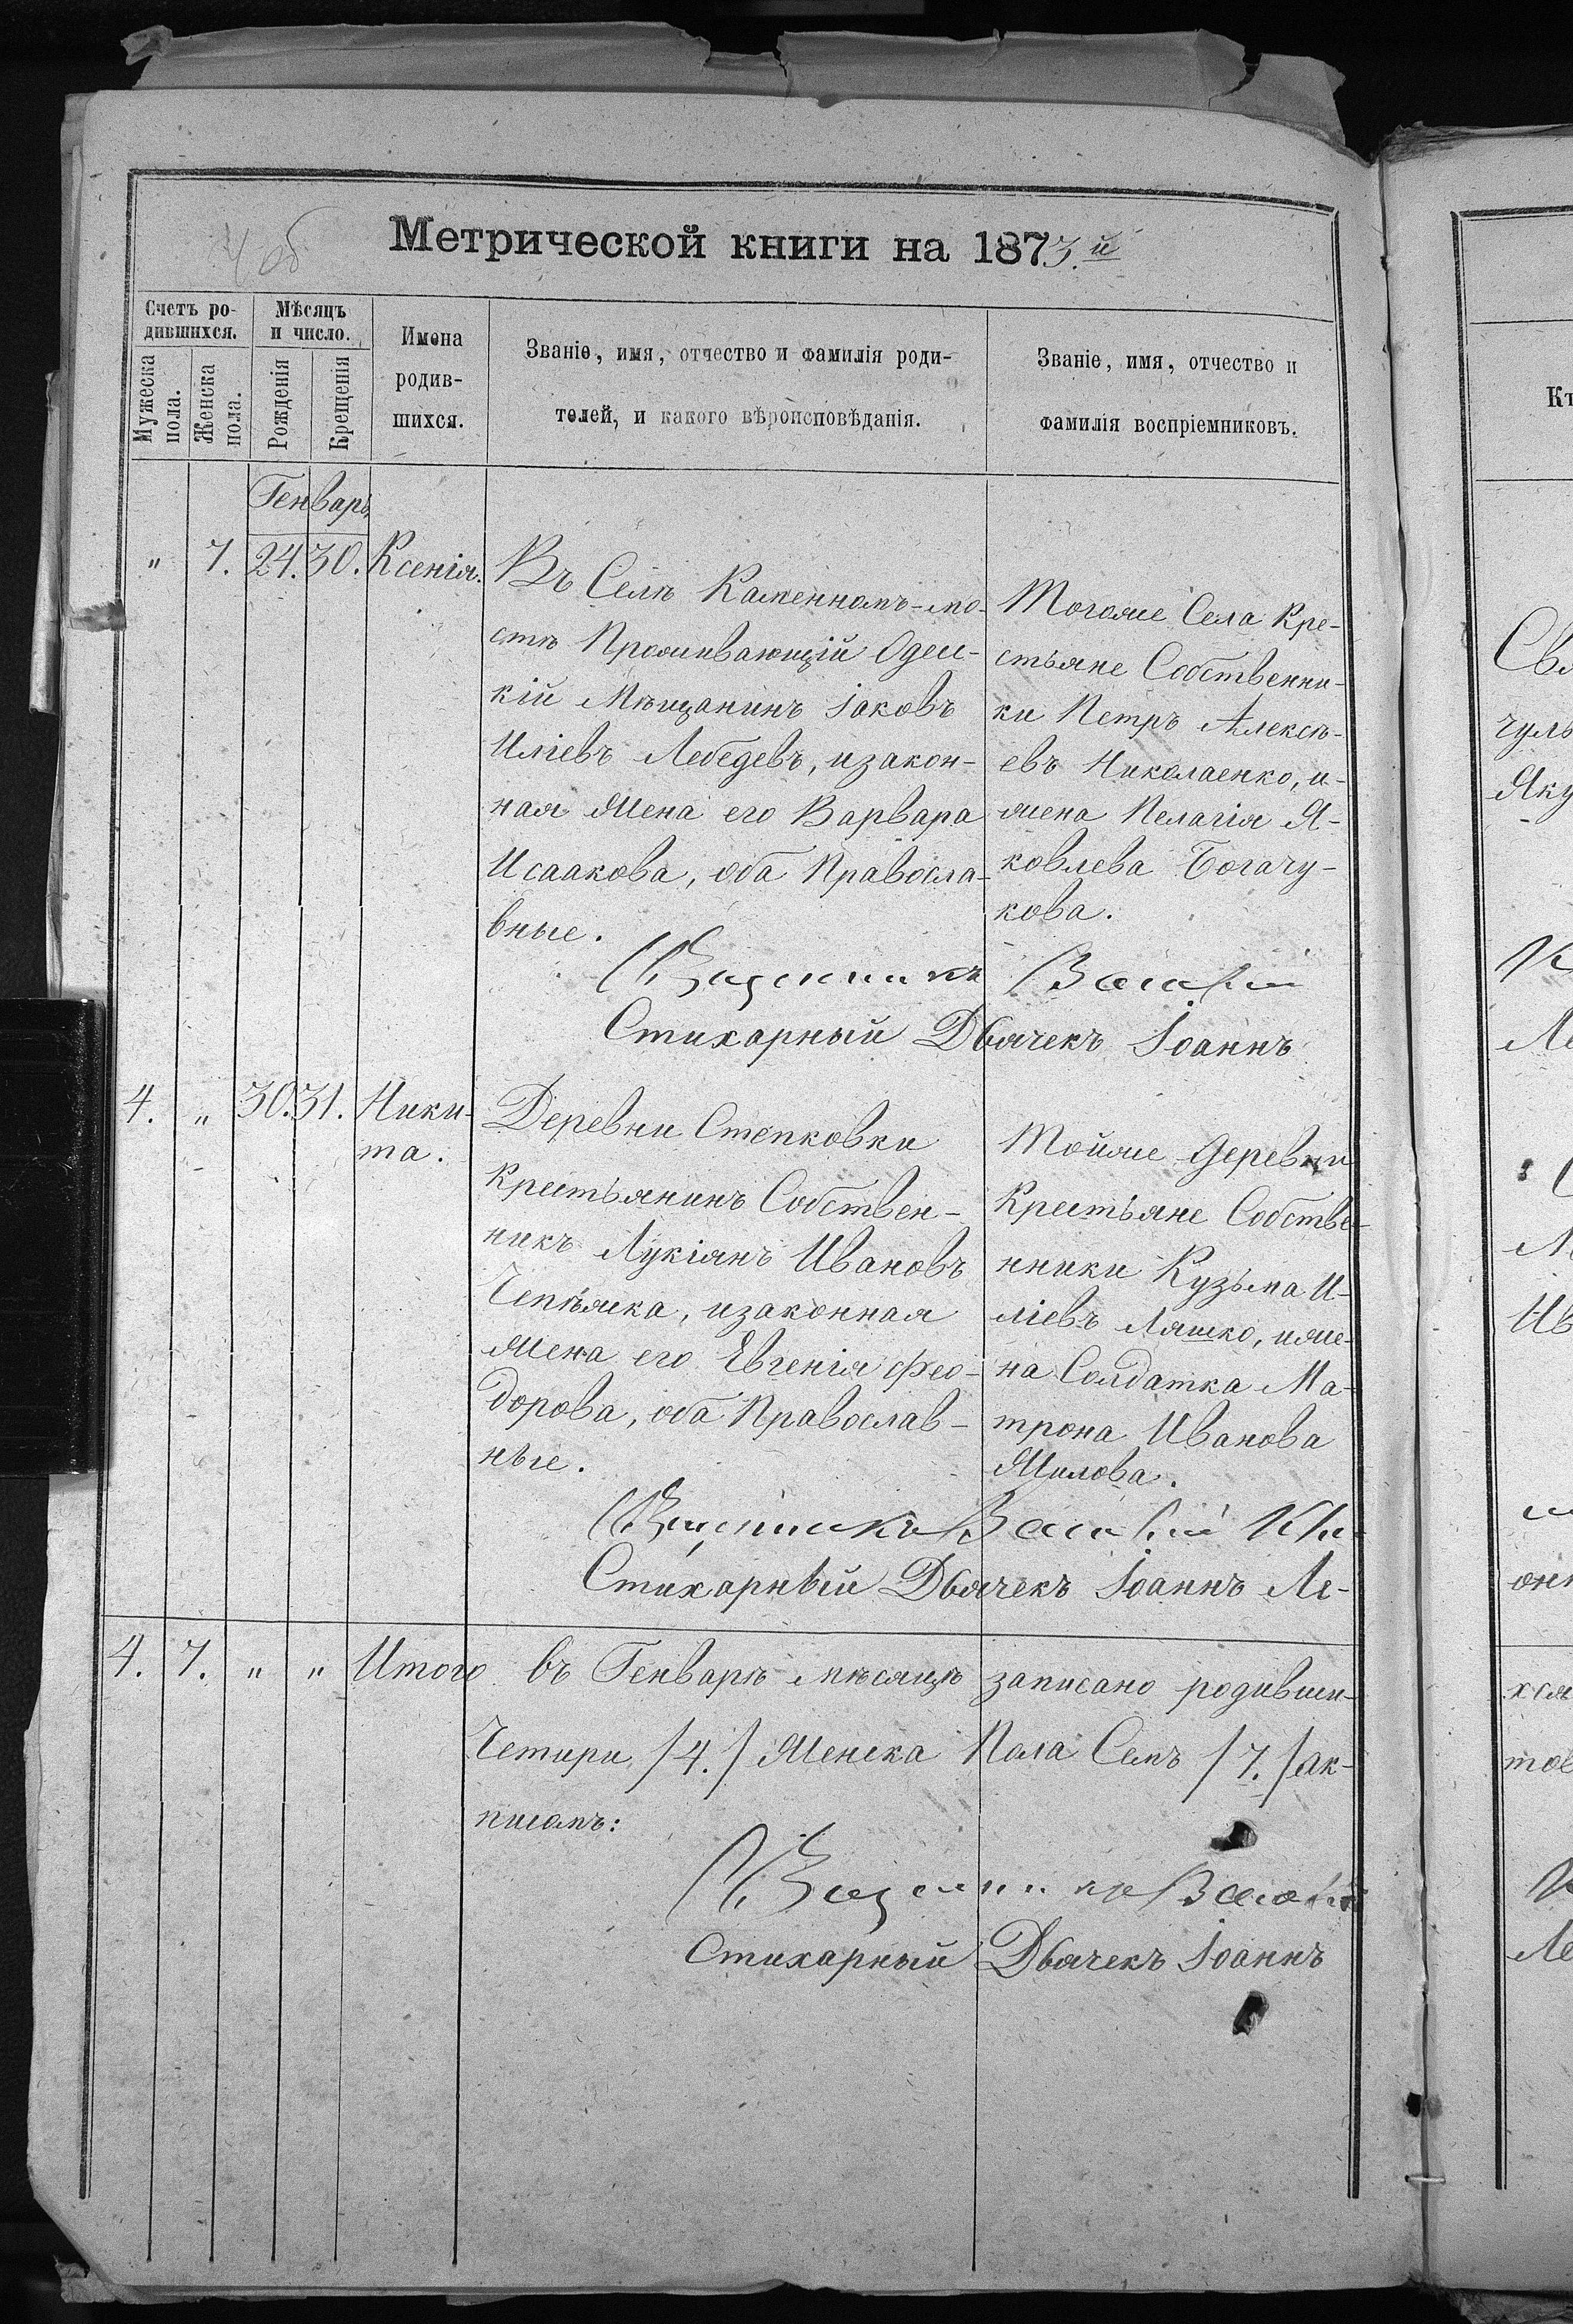 4 об
Метрической книги на 1873.й
Счетъ ро-
дившихся.
Мѣсяцъ
и число.
Мужеска
пола.
Женска
пола.
Рожденія
Крещенія
Имена
родив-
шихся.
Званіе, имя, отчество и фамилія роди-
телей, и какого вѣроисповѣданія.
Званіе, имя, отчество и
фамилія воспріемниковъ.
Генварь
" 7. 24. 30. Ксенія.
Въ Селѣ Каменномъ-мо-
стѣ Проживающій Одес-
кій Мѣщанинъ Іаковъ
Иліевъ Лебедевъ, изакон-
ная Жена его Варвара
Исаакова, оба Правосла-
вные.
Тогоже Села Кре-
стьяне Собственни-
ки Петръ Алексѣ-
евъ Николаенко, и-
жена Пелагія Я-
ковлева Богачу-
кова.
Священникъ Василій
Стихарный Дьячекъ Іоаннъ
4. " 30. 31. Ники-
та.
Деревни Степковки
Крестьянинъ Собствен-
никъ Лукіянъ Ивановъ
Чепѣжка, изаконная
Жена его Евгенія Фео-
дорова, оба Православ-
ные.
Тойже Деревни
Крестьяне Собстве-
нники Кузьма И-
ліевъ Ляшко, иже-
на Солдатка Ма-
трона Иванова
Жилова.
Священникъ Василій
Стихарный Дьячекъ Іоаннъ Ле-
4. 7. " " Итого въ Генварѣ мѣсяцѣ записано родивши-
Четири /4./ Женска Пола Семъ /7./ ак-
писомъ:
Священникъ Василій
Стихарный Дьячекъ Іоаннъ
Кт
чуль
Яку
Ле
Ив
хся
Ле